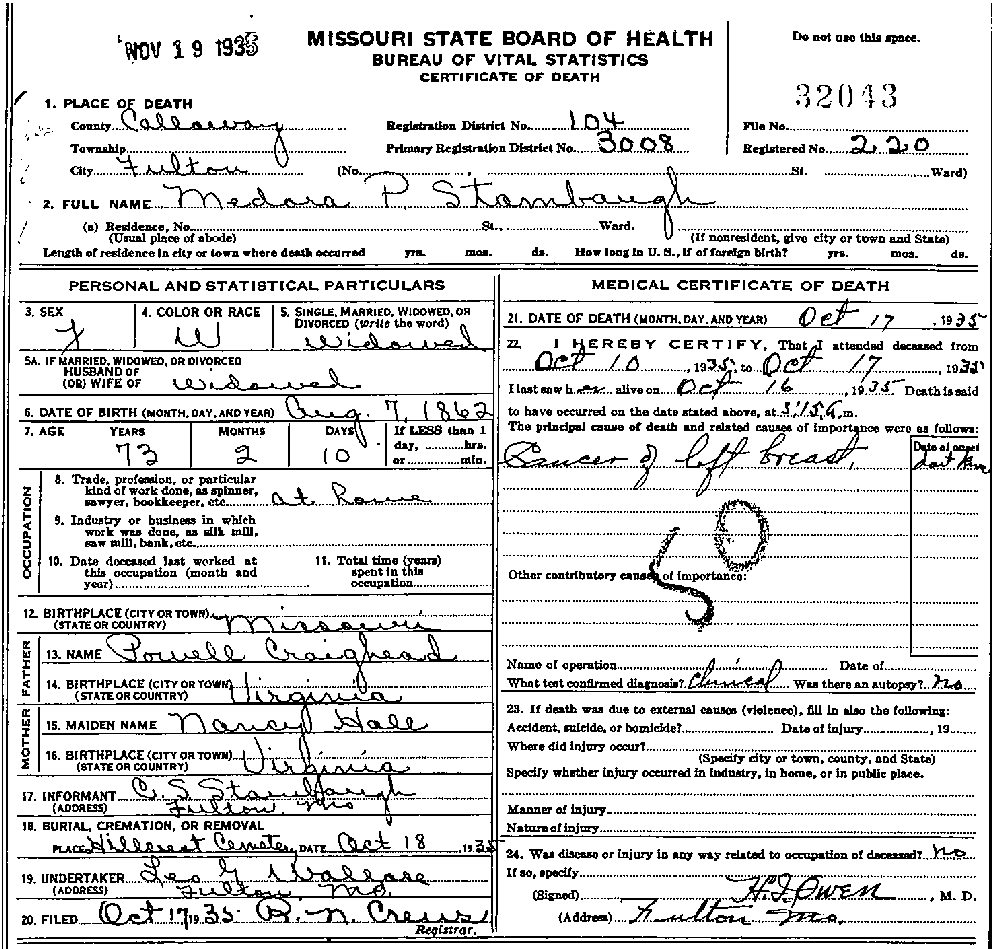 NOV 19 1935
MISSOURI STATE BOARD OF HEALTH
BUREAU OF VITAL STATISTICS
CERTIFICATE OF DEATH
Do not use this space.
32043
1. PLACE OF DEATH
County Callaway Registration District No. 104 File No.
Township Primary Registration District No. 3008 Registered No. 220
City Fulton (No. St. Ward)
2. FULL NAME Medora P Stambaugh
(a) Residence, No. St., Ward.
(Usual place of abode) (If nonresident, give city or town and State)
Length of residence in city or town where death occurred yrs. mos. ds. How long in U. S., if of foreign birth? yrs. mos. ds.
PERSONAL AND STATISTICAL PARTICULARS
3. SEX 4. COLOR OR RACE 5. SINGLE, MARRIED, WIDOWED, OR
DIVORCED (write the word)
F W Widowed
5A. IF MARRIED, WIDOWED, OR DIVORCED
HUSBAND OF
(OR) WIFE OF Widowed
6. DATE OF BIRTH (MONTH, DAY, AND YEAR) Aug. 7, 1862
7. AGE YEARS MONTHS DAYS If LESS than 1
day, hrs.
73 2 10 or min.
OCCUPATION
8. Trade, profession, or particular
kind of work done, as spinner,
sawyer, bookkeeper, etc. at Home
9. Industry or business in which
work was done, as silk mill,
saw mill, bank, etc.
10. Date deceased last worked at
this occupation (month and
year)
11. Total time (years)
spent in this
occupation
12. BIRTHPLACE (CITY OR TOWN)
(STATE OR COUNTRY) Missouri
FATHER
13. NAME Powell Craighead
14. BIRTHPLACE (CITY OR TOWN)
(STATE OR COUNTRY) Virginia
MOTHER
15. MAIDEN NAME Nancy Hall
16. BIRTHPLACE (CITY OR TOWN)
(STATE OR COUNTRY) Virginia
17. INFORMANT C. S Stambaugh
(ADDRESS) Fulton Mo
18. BURIAL, CREMATION, OR REMOVAL
PLACE Hillcrest Cemetery DATE Oct 18 1935
19. UNDERTAKER Leo G Wallace
(ADDRESS) Fulton Mo.
20. FILED Oct 17 1935 R. N. Crews
Registrar.
MEDICAL CERTIFICATE OF DEATH
21. DATE OF DEATH (MONTH, DAY, AND YEAR) Oct 17, 1935
22. I HEREBY CERTIFY, That I attended deceased from
Oct 10, 1935, to Oct 17, 1935
I last saw her alive on Oct 16, 1935 Death is said
to have occurred on the date stated above, at m.
The principal cause of death and related causes of importance were as follows:
Date of onset
Cancer of left breast.
50
Other contributory causes of importance:
Name of operation Date of
What test confirmed diagnosis? Clinical Was there an autopsy? no
23. If death was due to external causes (violence), fill in also the following:
Accident, suicide, or homicide? Date of injury , 19
Where did injury occur?
(Specify city or town, county, and State)
Specify whether injury occurred in industry, in home, or in public place.
Manner of injury
Nature of injury
24. Was disease or injury in any way related to occupation of deceased? no
If so, specify
(Signed) H. I. Owen, M. D.
(Address) Fulton Mo.